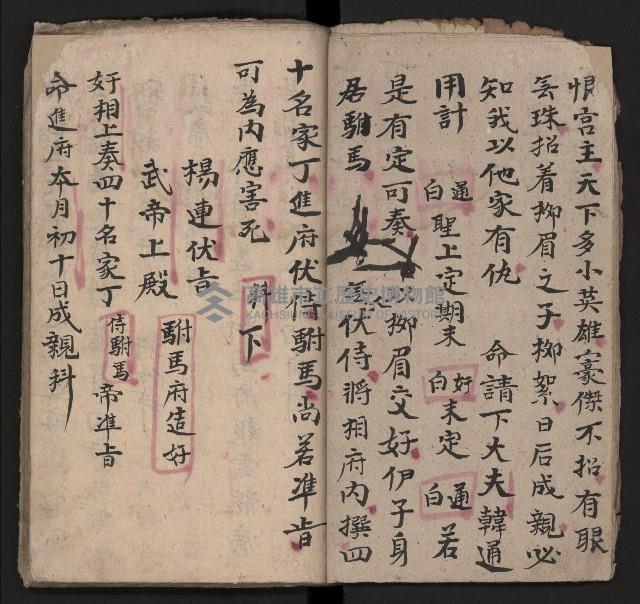 恨宫主天下多小英雄豪傑不招有眼
無珠招着柳眉之子柳絮日后成親必
知我以他家有仇　命請下大夫韓通
用計　通白　聖上定期未　好白　未定　通白　若
是有定可奏　柳眉交好伊子身
居駙馬　伏侍將相府内撰四
十名家丁進府伏侍駙馬尚若准旨
可為内應害死　科下
楊連伏旨
武帝上殿　駙馬府造好
奸相上奏四十名家丁　侍駙馬　帝准旨
命進府本月初十日成親科
高雄市立歷史博物館
KAOHSIUNG MUSEUM OF HISTORY